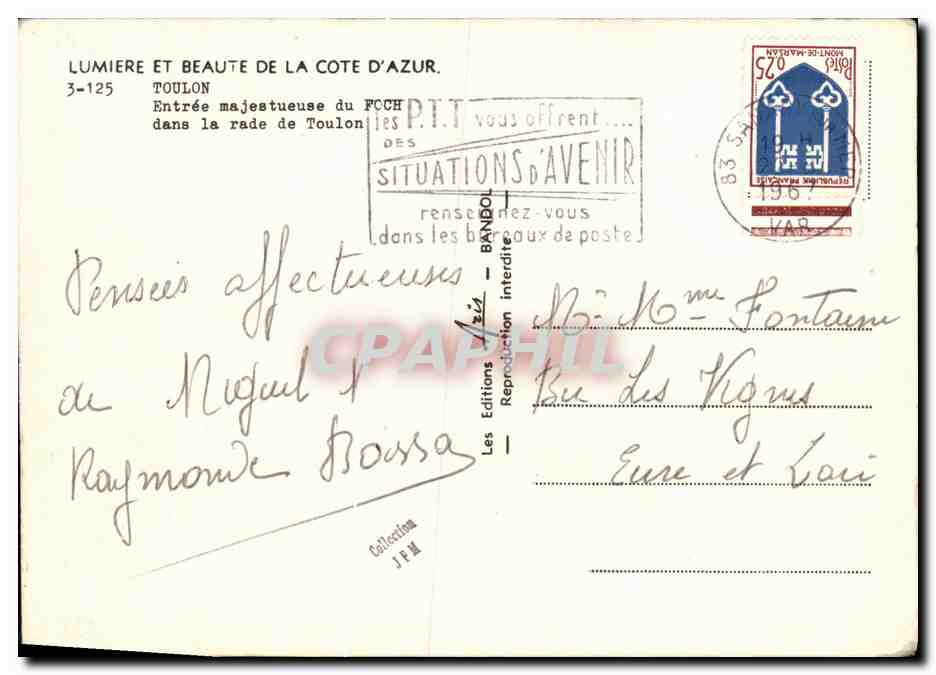 LUMIERE ET BEAUTE DE LA COTE D'AZUR.
3-125 TOULON
Entrée majestueuse du FOCH
dans la rade de Toulon
les P.T.T vous offrent....
DES
SITUATIONS D'AVENIR
renseignez-vous
dans les bureaux de poste
Postes
0,25
MONT-DE-MARSAN
REPUBLIQUE FRANÇAISE
83
19 H
1967
VAR
Pensées affectueuses
de Miguel &
Raymonde Bossa
Collection
JFM
Les Editions Aris — BANDOL
Reproduction interdite
CPAPHIL
Mr Mme Fontaine
Bu Les Vignes
Eure et Loir